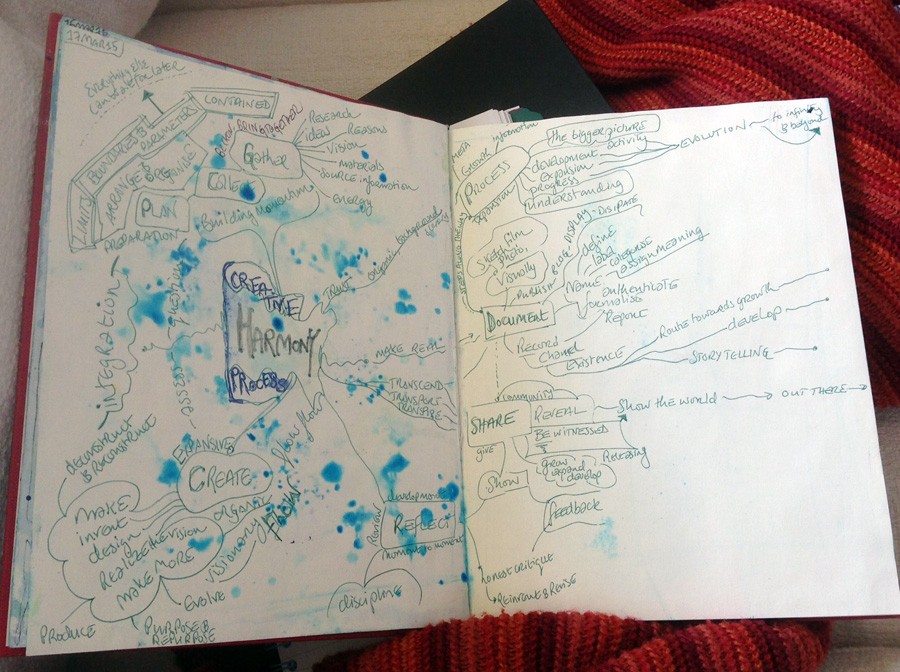 17 MAR 15
EVERYTHING ELSE
CAN WAIT FOR LATER
CONTAINED
BOUNDRIES &
PARAMETERS
LIMITS
ARRANGE &
ORGANISE
PLAN
PREPARATION
BRING TOGETHER
Gather
Collect
Building Momentum
Research
ideas
Reasons
Vision
materials
SOURCE INFORMATION
energy
INTEGRATION
question
assess
CREATIVE
HARMONY
PROCESS
TRUST
organic background
MAKE REAL
TRANSCEND
TRANSPORT
TRANSPIRE
flow flow
FLOW
deconstruct
& Reconstruct
EXPANSIVE
CREATE
organic
visionary
make
invent
design
REALIZE THE VISION
MAKE MORE
Evolve
PRODUCE
PURPOSE &
REPURPOSE
development
REFLECT
Review
moment to moment
discipline
META
Growth information
PROCESS
EXPANSION
the bigger picture
activity
development
expansion
progress
understanding
EVOLUTION
to infinity
& beyond
Sketch film
& photo,
Visually
Publish
BLOG - DISPLAY - DISIPATE
define
label
categorise
Name
assign meaning
authenticate
journalise
Report
DOCUMENT
Record
Channel
EXISTENCE
Route towards growth
develop
STORYTELLING
community
SHARE
REVEAL
Show the world
OUT THERE
BE WITNESSED
give
grow
expand
develop
Releasing
Show
feedback
honest critique
Reinvent & Revise